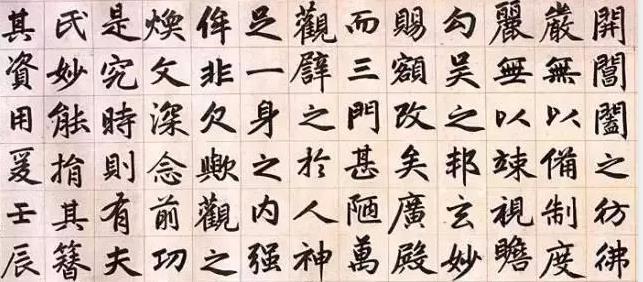 開閶闔之彷彿
嚴無以備制度
麗無以竦視瞻
勾吳之邦玄妙
賜額改矣廣殿
而三門甚陋萬
觀譬之於人神
足一身之內强
侔非欠歟觀之
煥文深念前功
是究時則有夫
氏妙能捐其簪
其資用爰壬辰